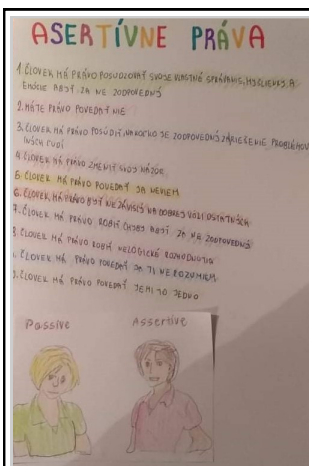 ASERTÍVNE PRÁVA
1. ČLOVEK MÁ PRÁVO POSUDZOVAŤ SVOJE VLASTNÉ SPRÁVANIE, MYŠLIENKY, A
EMÓCIE A BYŤ ZA NE ZODPOVEDNÝ
2. MÁTE PRÁVO POVEDAŤ NIE
3. ČLOVEK MÁ PRÁVO POSÚDIŤ NAKOĽKO JE ZODPOVEDNÝ ZA RIEŠENIE PROBLÉMOV
INÝCH ĽUDÍ
4. ČLOVEK MÁ PRÁVO ZMENIŤ SVOJ NÁZOR
5. ČLOVEK MÁ PRÁVO POVEDAŤ JA NEVIEM
6. ČLOVEK MÁ PRÁVO BYŤ NEZÁVISLÝ NA DOBREJ VÔLI OSTATNÝCH
7. ČLOVEK MÁ PRÁVO ROBIŤ CHYBY A BYŤ ZA NE ZODPOVEDNÝ
8. ČLOVEK MÁ PRÁVO ROBIŤ NELOGICKÉ ROZHODNUTIA
ČLOVEK MÁ PRÁVO POVEDAŤ JA TI NEROZUMIEM
ČLOVEK MÁ PRÁVO POVEDAŤ JE MI TO JEDNO
Passive Assertive